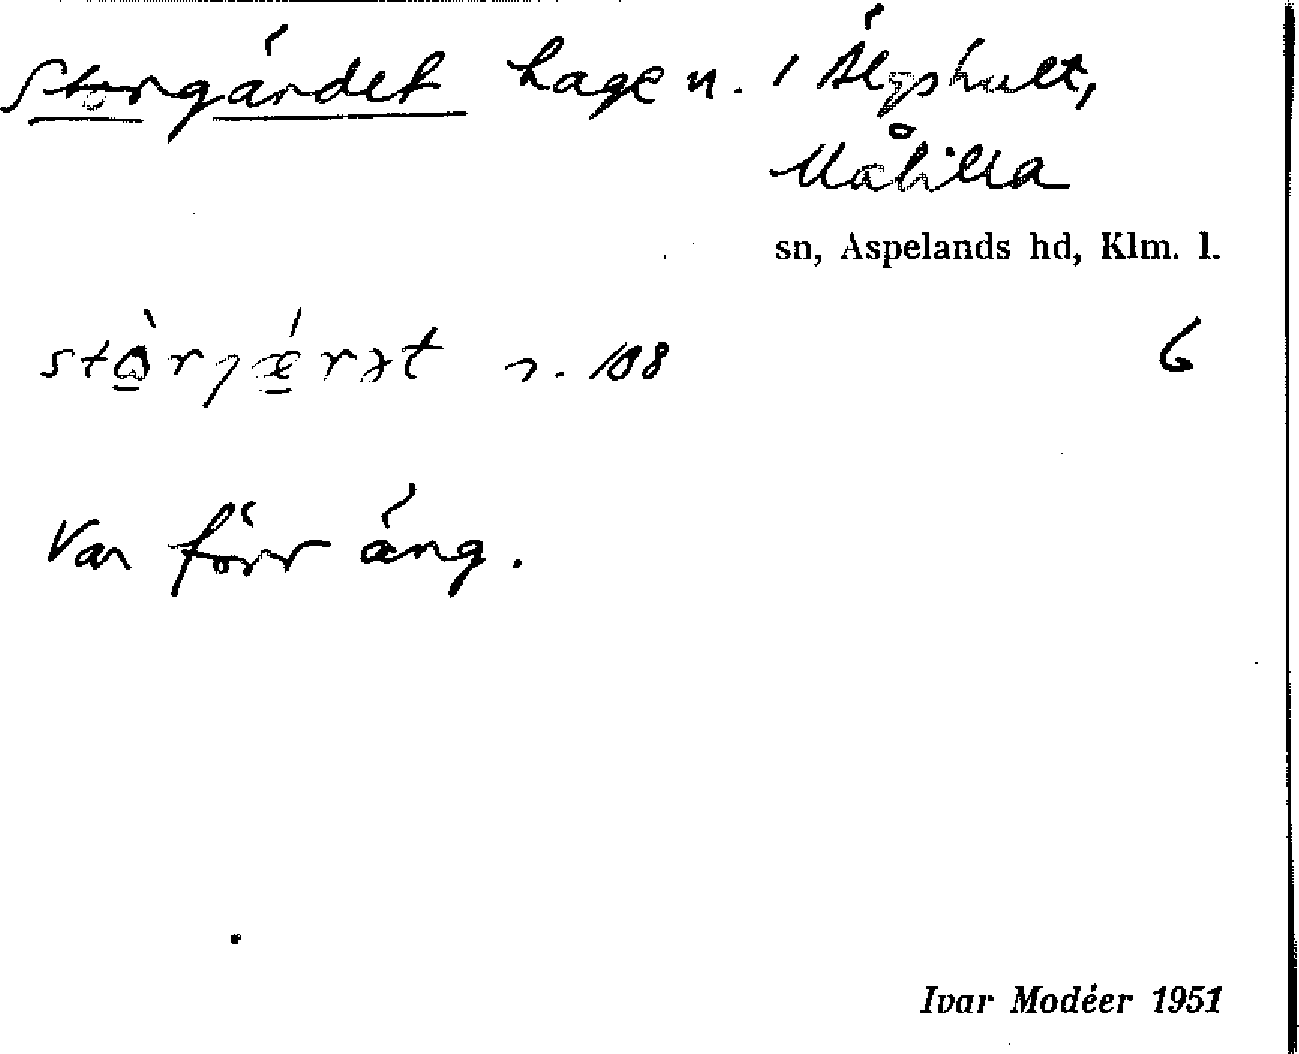 Storgärdet hage n. i Älgshult,
Målilla
sn, Aspelands hd, Klm. l.
6
Var förr äng.
Ivar Modéer 1951